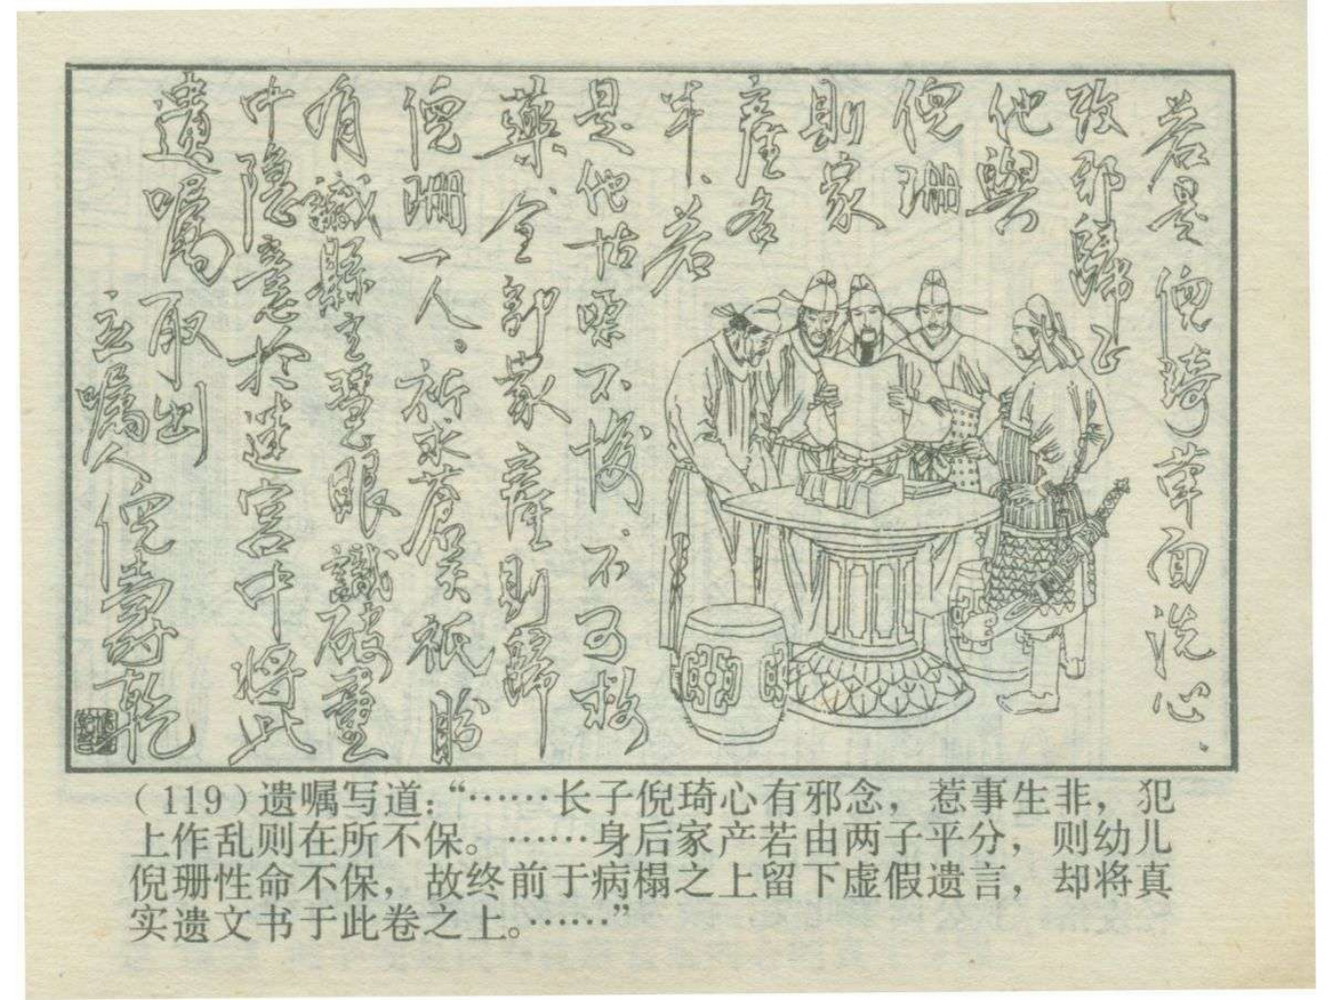 若是倪琦革面洗心、
改邪歸正
他與
倪珊
則家
產各
半、若
是他怙惡不悛、不可救
藥、全部家產則歸
倪珊一人、祈求蒼天祇盼
有識縣主慧眼識破畫
中隱意於迷宮中將此
遺囑取出
立囑人倪壽乾
（119）遗嘱写道：“……长子倪琦心有邪念，惹事生非，犯
上作乱则在所不保。……身后家产若由两子平分，则幼儿
倪珊性命不保，故终前于病榻之上留下虚假遗言，却将真
实遗文书于此卷之上。……”